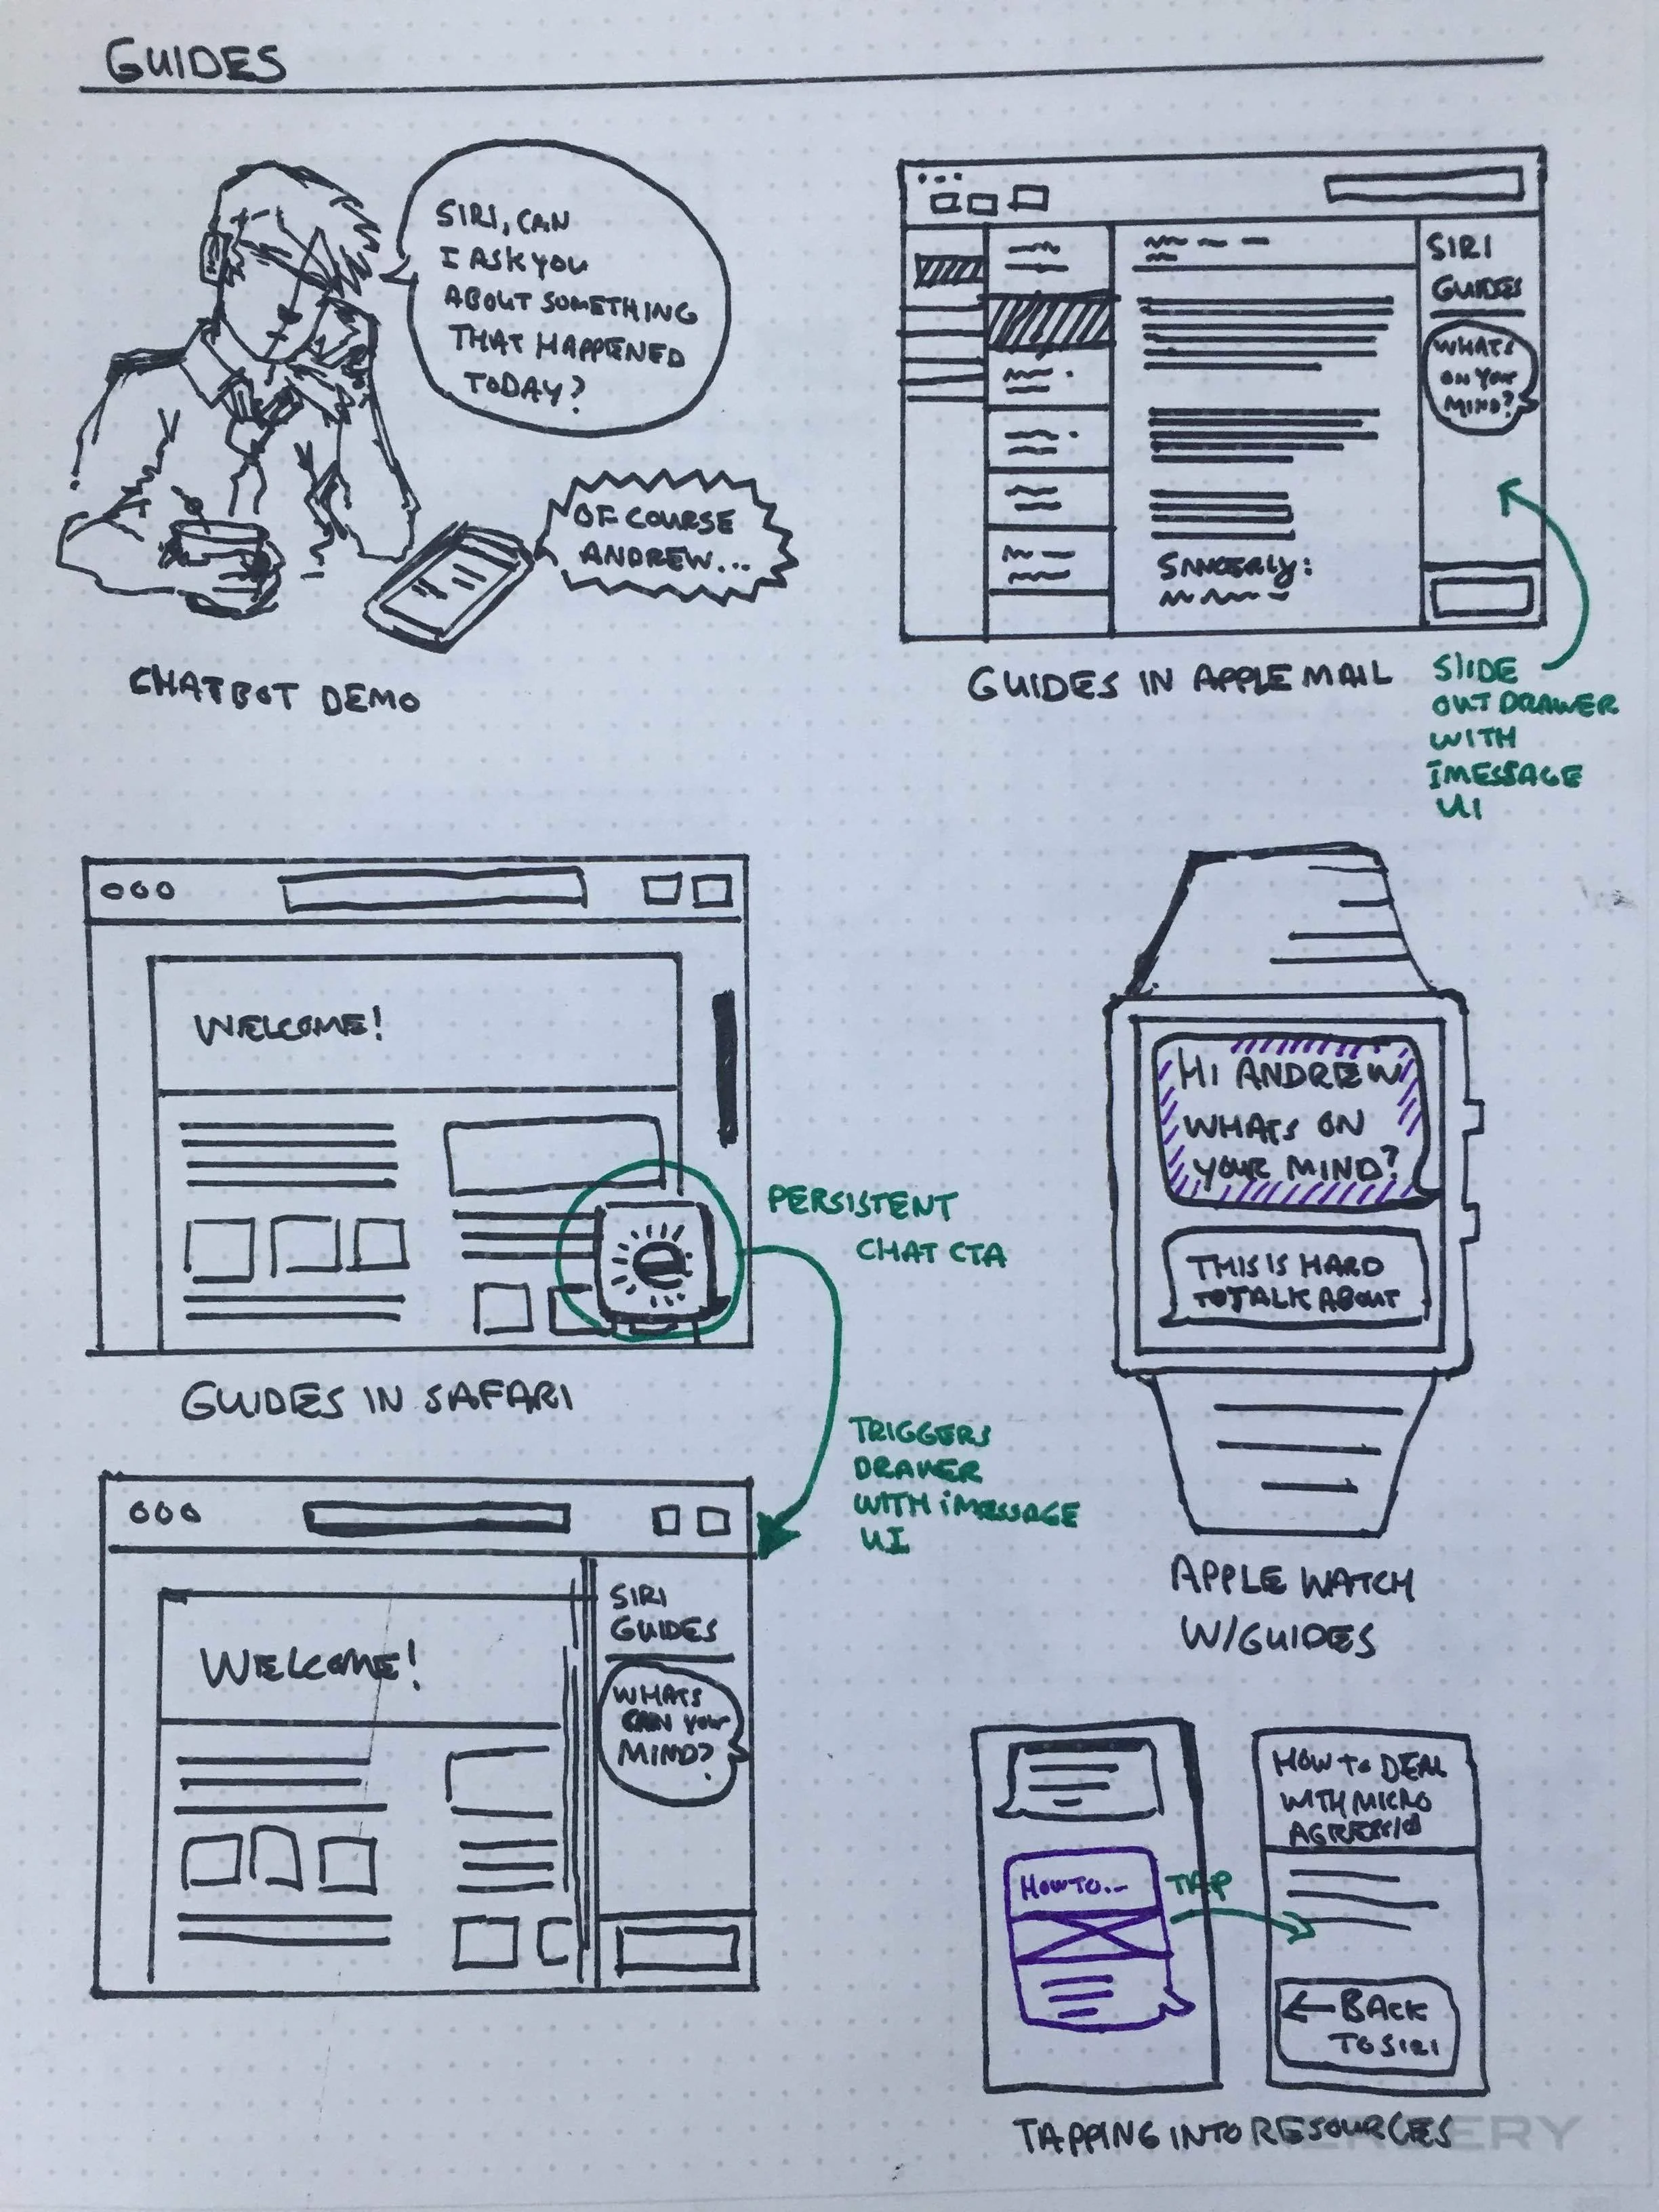 GUIDES
SIRI, CAN
I ASK YOU
ABOUT SOMETHING
THAT HAPPENED
TODAY?
OF COURSE
ANDREW...
CHATBOT DEMO
SIRI
GUIDES
WHATS
ON YOUR
MIND?
SINCERLY:
GUIDES IN APPLE MAIL
SLIDE
OUT DRAWER
WITH
IMESSAGE
UI
WELCOME!
PERSISTENT
CHAT CTA
GUIDES IN SAFARI
TRIGGERS
DRAWER
WITH iMESSAGE
UI
WELCOME!
SIRI
GUIDES
WHATS
YOUR
MIND?
HI ANDREW
WHATS ON
YOUR MIND?
THIS IS HARD
TO TALK ABOUT
APPLE WATCH
W/GUIDES
HOW TO...
TAP
HOW TO DEAL
WITH MICRO
← BACK
TO SIRI
TAPPING INTO RESOURCES